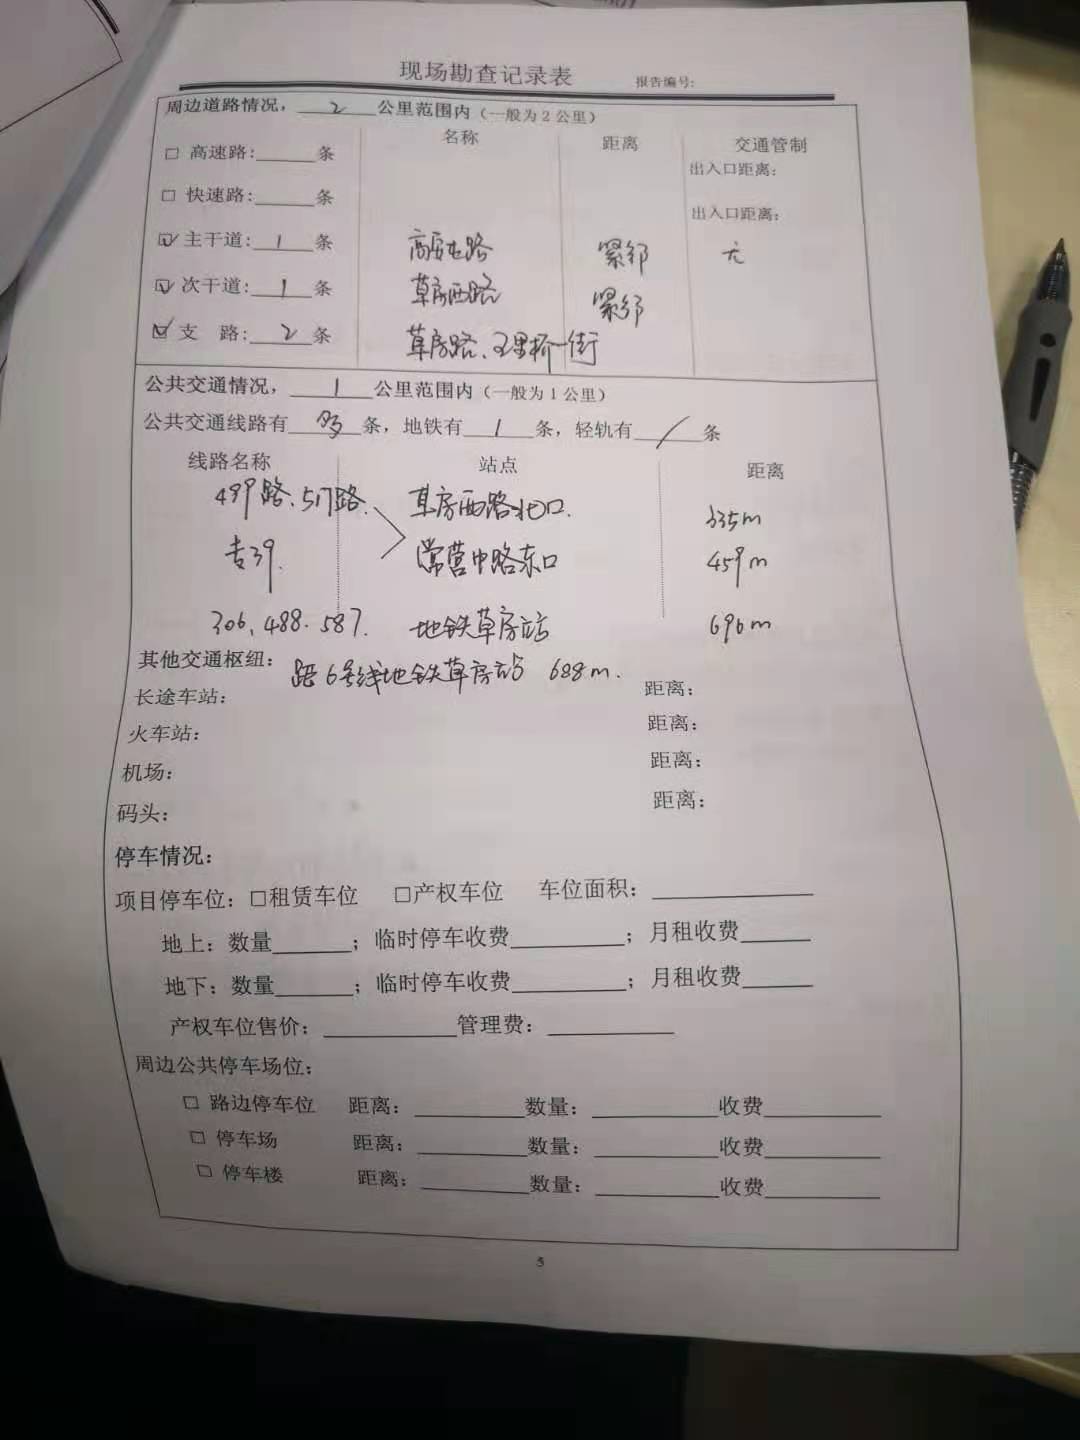 现场勘查记录表 报告编号:
周边道路情况，2公里范围内（一般为2公里）
名称 距离 交通管制
□ 高速路:______条 出入口距离:
□ 快速路:______条 出入口距离:
☑ 主干道:1条 高安屯路 紧邻 无
☑ 次干道:1条 草房西路 紧邻
☑ 支 路:2条 草房路、五里桥一街
公共交通情况，1公里范围内（一般为1公里）
公共交通线路有多条，地铁有1条，轻轨有/条
线路名称 站点 距离
499路、517路. 草房西路北口. 335m
专39. 常营中路东口 459m
306、488.587. 地铁草房站 696m
其他交通枢纽: 距6号线地铁草房站 688m.
长途车站: 距离:
火车站: 距离:
机场: 距离:
码头: 距离:
停车情况:
项目停车位: □租赁车位 □产权车位 车位面积:______
地上: 数量______; 临时停车收费______; 月租收费______
地下: 数量______; 临时停车收费______; 月租收费______
产权车位售价:______管理费:______
周边公共停车场位:
□ 路边停车位 距离:______数量:______收费______
□ 停车场 距离:______数量:______收费______
□ 停车楼 距离:______数量:______收费______
5